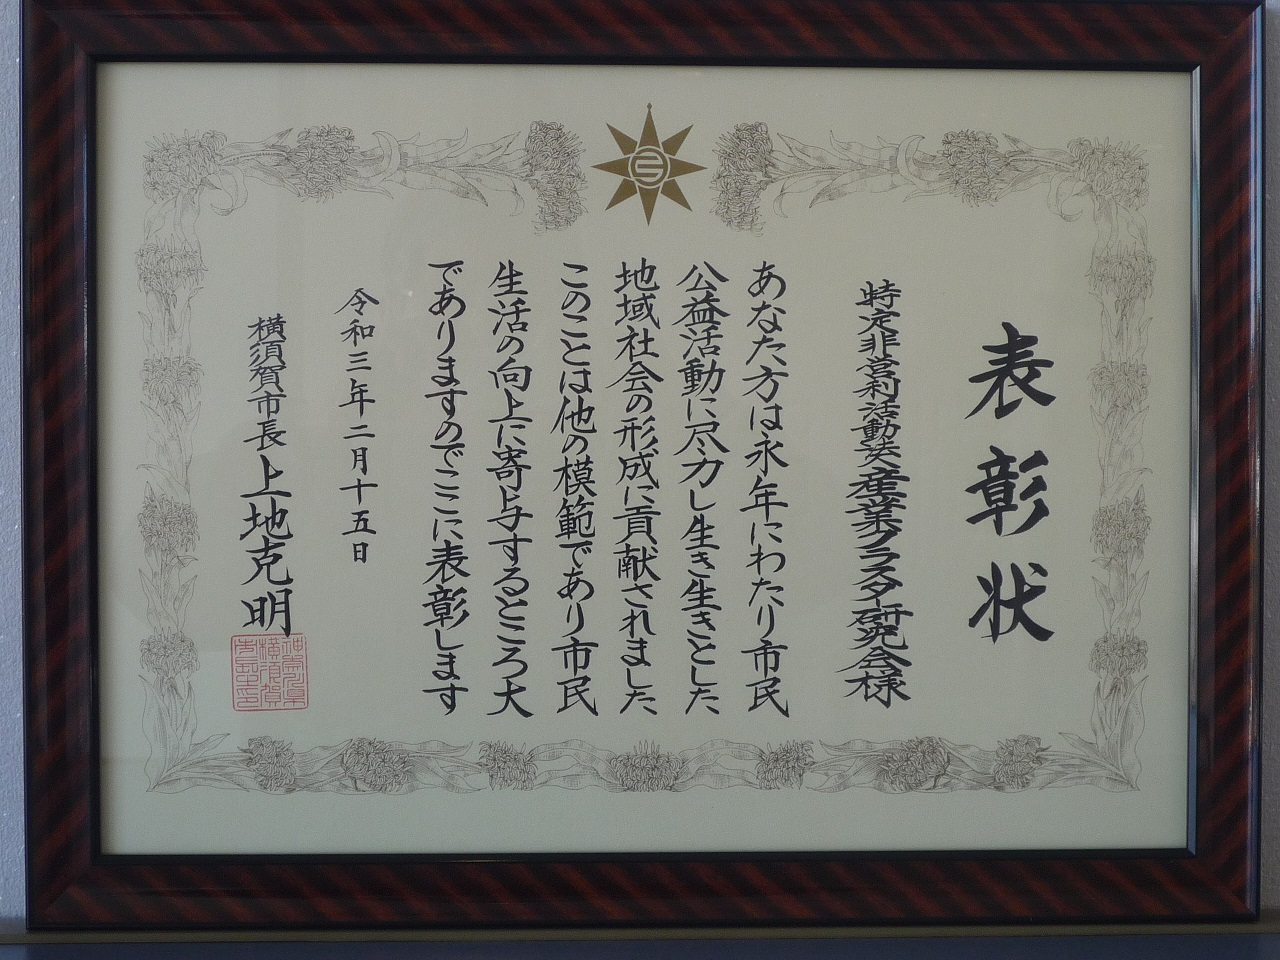 表彰状
特定非営利活動法人産業クラスター研究会様
あなた方は永年にわたり市民
公益活動に尽力し生き生きとした
地域社会の形成に貢献されました
このことは他の模範であり市民
生活の向上に寄与するところ大
でありますのでここに表彰します
令和三年二月十五日
横須賀市長上地克明